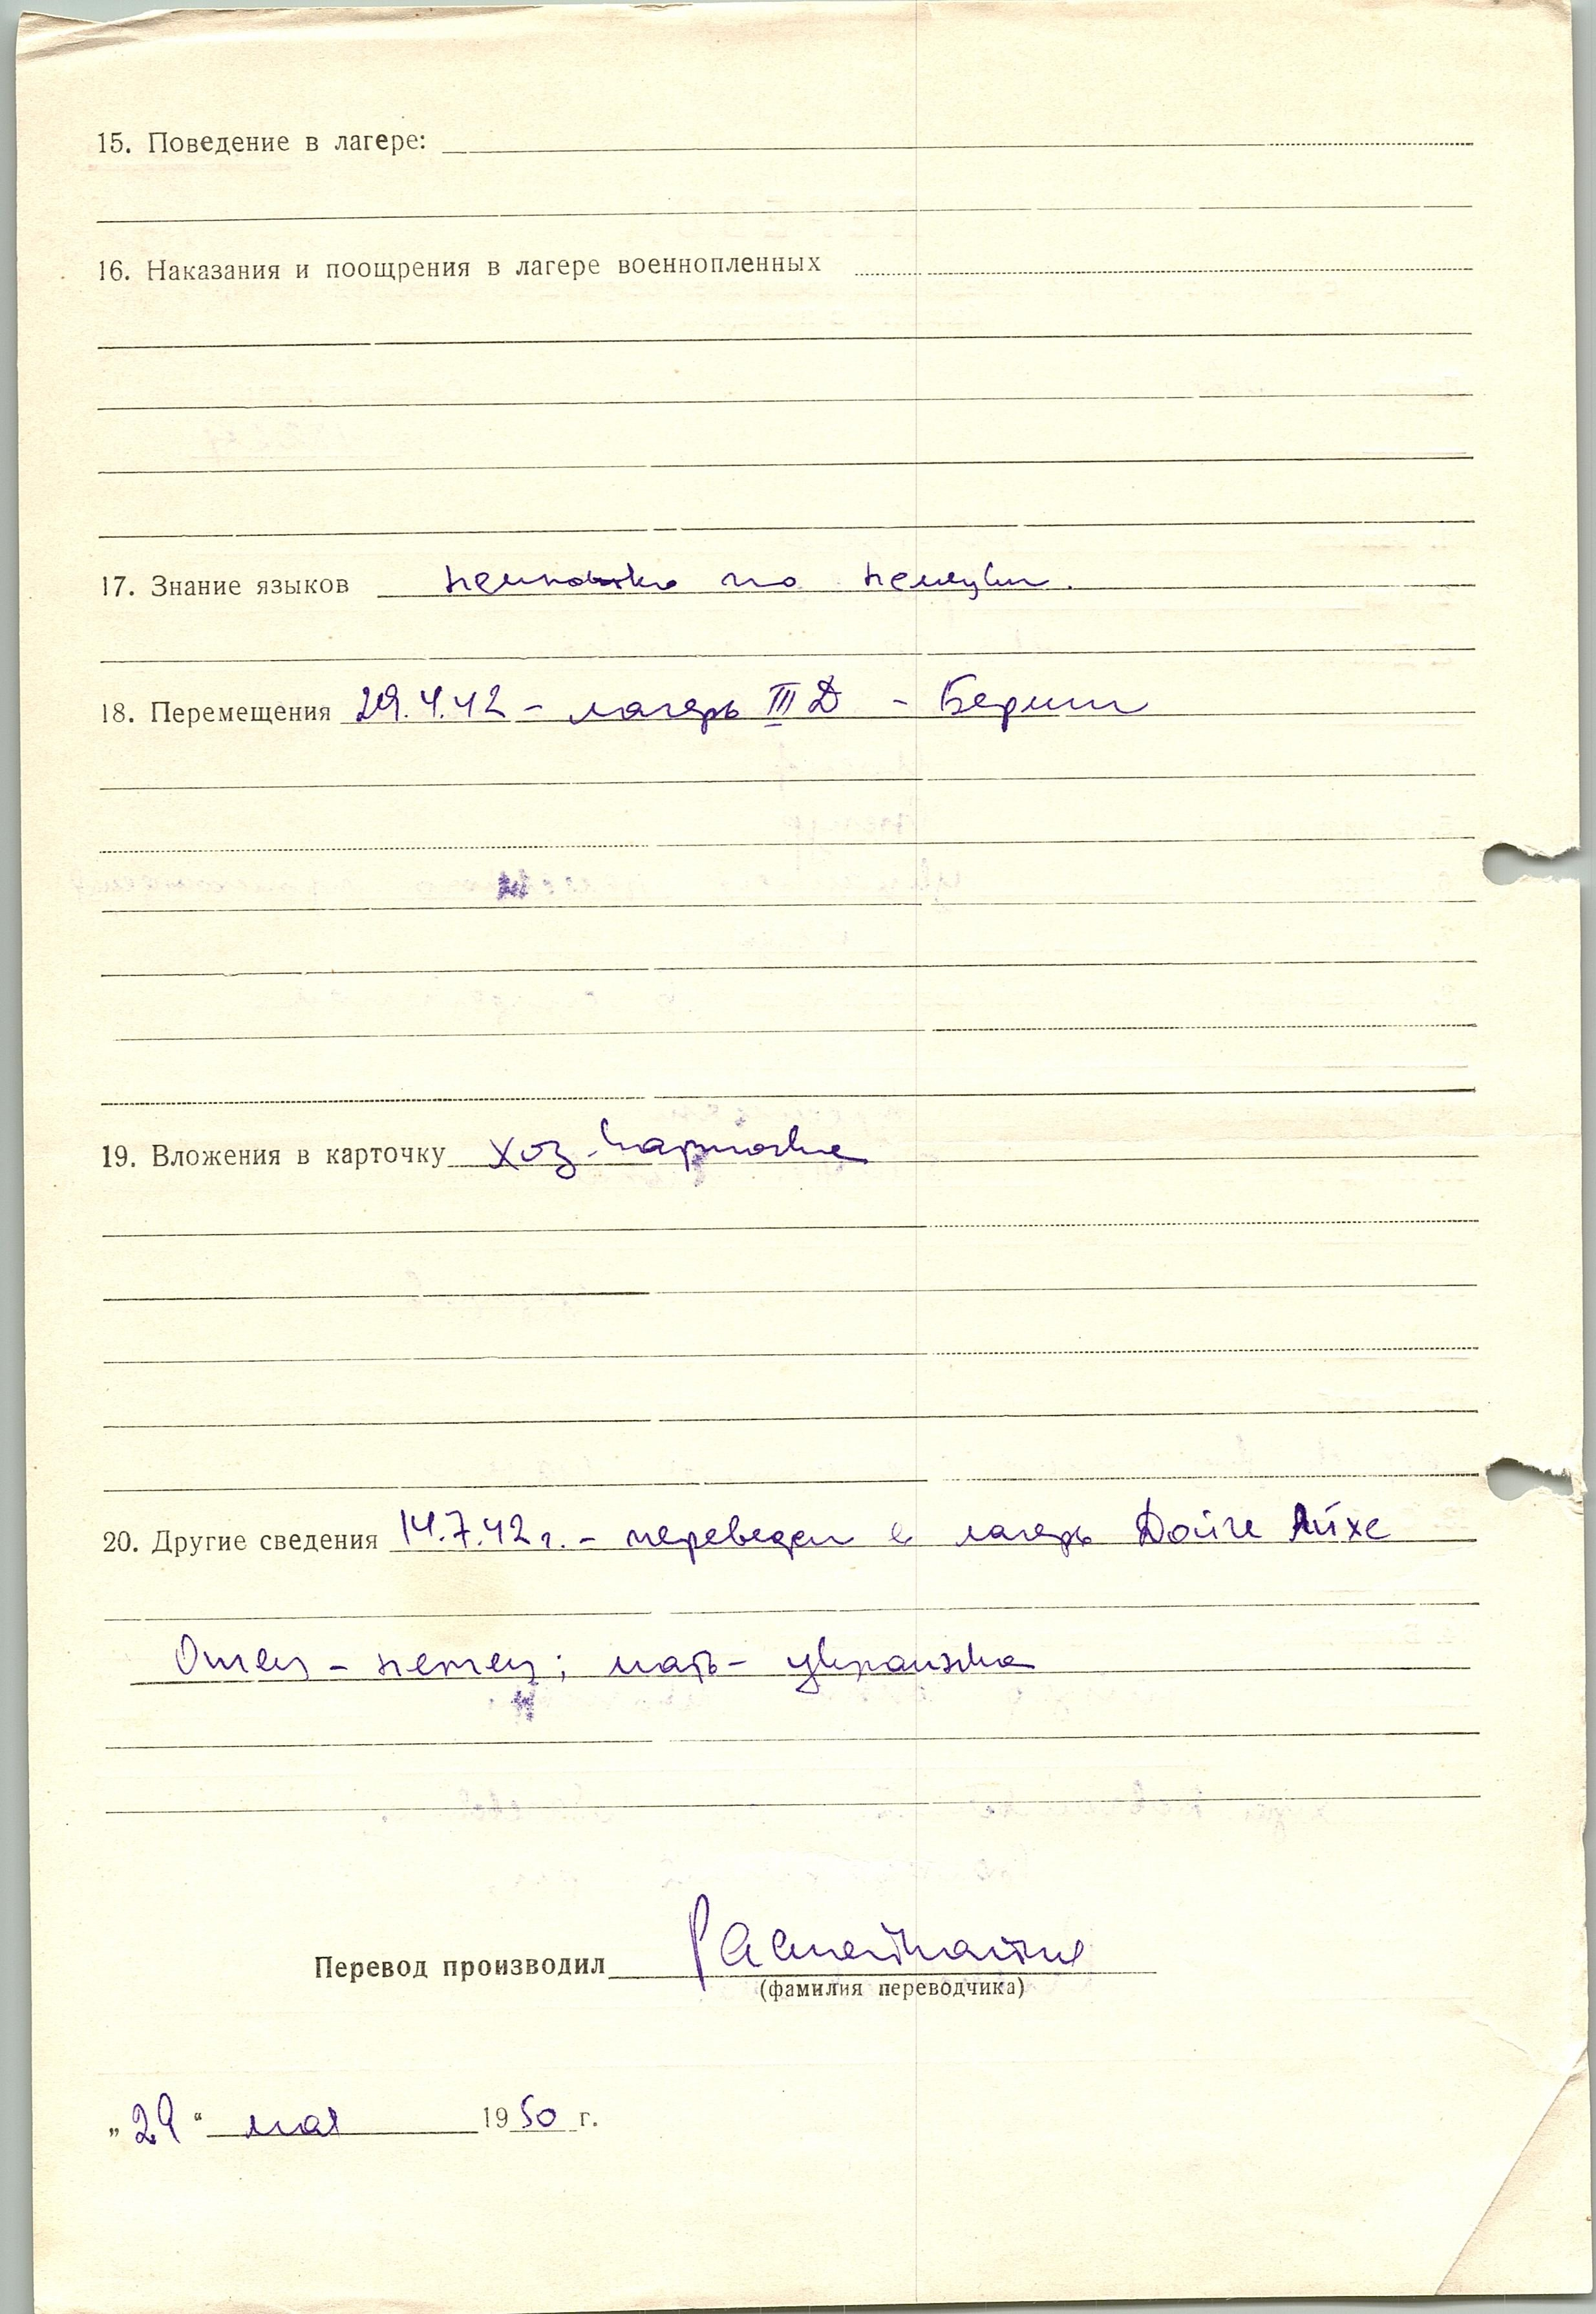 15. Поведение в лагере:
16. Наказания и поощрения в лагере военнопленных
17. Знание языков немножко по немецки.
18. Перемещения 29.4.42 - лагерь III Д - Берлин
19. Вложения в карточку хоз. карточка
20. Другие сведения 14.7.42 г. - переведен в лагерь Дойче Айхе
Отец - немец; мать - украинка
Перевод производил
(фамилия переводчика)
„29“ мая 1950 г.